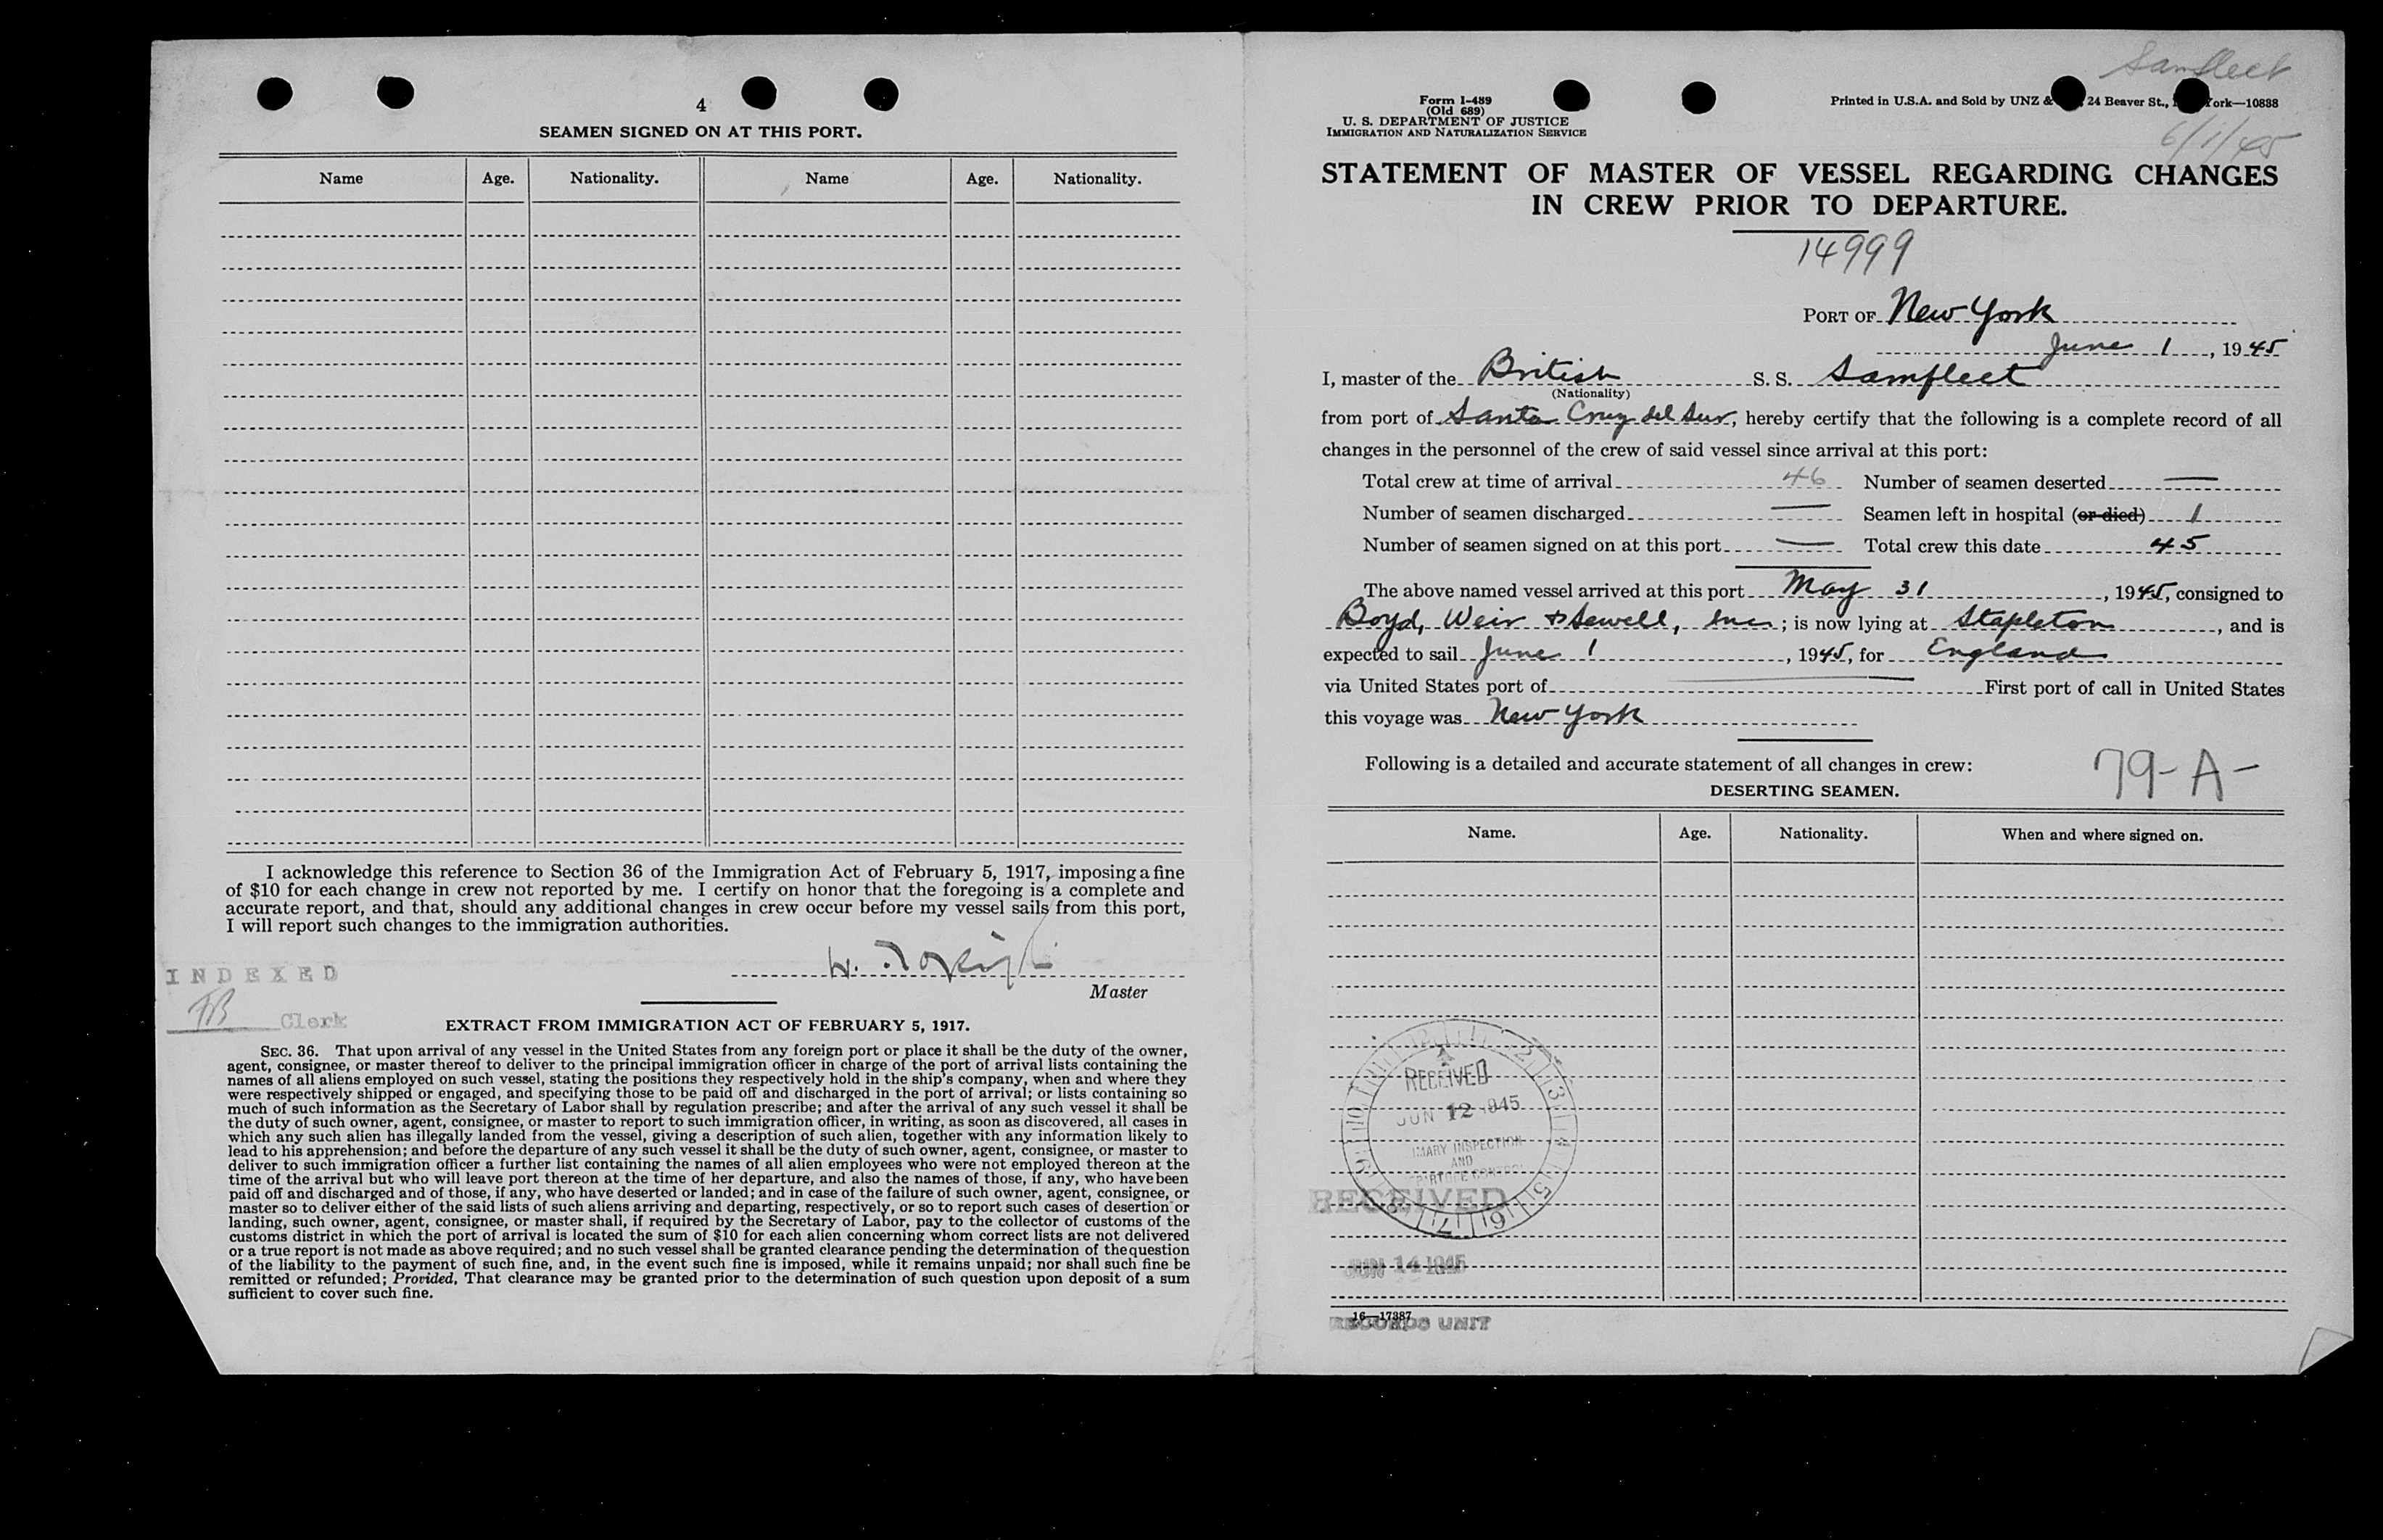 4
SEAMEN SIGNED ON AT THIS PORT.
Name Age. Nationality. Name Age. Nationality.
I acknowledge this reference to Section 36 of the Immigration Act of February 5, 1917, imposing a fine
of $10 for each change in crew not reported by me. I certify on honor that the foregoing is a complete and
accurate report, and that, should any additional changes in crew occur before my vessel sails from this port,
I will report such changes to the immigration authorities.
Master
INDEXED
Clerk
EXTRACT FROM IMMIGRATION ACT OF FEBRUARY 5, 1917.
SEC. 36. That upon arrival of any vessel in the United States from any foreign port or place it shall be the duty of the owner,
agent, consignee, or master thereof to deliver to the principal immigration officer in charge of the port of arrival lists containing the
names of all aliens employed on such vessel, stating the positions they respectively hold in the ship's company, when and where they
were respectively shipped or engaged, and specifying those to be paid off and discharged in the port of arrival; or lists containing so
much of such information as the Secretary of Labor shall by regulation prescribe; and after the arrival of any such vessel it shall be
the duty of such owner, agent, consignee, or master to report to such immigration officer, in writing, as soon as discovered, all cases in
which any such alien has illegally landed from the vessel, giving a description of such alien, together with any information likely to
lead to his apprehension; and before the departure of any such vessel it shall be the duty of such owner, agent, consignee, or master to
deliver to such immigration officer a further list containing the names of all alien employees who were not employed thereon at the
time of the arrival but who will leave port thereon at the time of her departure, and also the names of those, if any, who have been
paid off and discharged and of those, if any, who have deserted or landed; and in case of the failure of such owner, agent, consignee, or
master so to deliver either of the said lists of such aliens arriving and departing, respectively, or so to report such cases of desertion or
landing, such owner, agent, consignee, or master shall, if required by the Secretary of Labor, pay to the collector of customs of the
customs district in which the port of arrival is located the sum of $10 for each alien concerning whom correct lists are not delivered
or a true report is not made as above required; and no such vessel shall be granted clearance pending the determination of the question
of the liability to the payment of such fine, and, in the event such fine is imposed, while it remains unpaid; nor shall such fine be
remitted or refunded; Provided, That clearance may be granted prior to the determination of such question upon deposit of a sum
sufficient to cover such fine.
Samfleet
6/1/45
Form I-489
(Old 689)
U. S. DEPARTMENT OF JUSTICE
IMMIGRATION AND NATURALIZATION SERVICE
Printed in U.S.A. and Sold by UNZ & 24 Beaver St., ork—10838
STATEMENT OF MASTER OF VESSEL REGARDING CHANGES
IN CREW PRIOR TO DEPARTURE.
14999
PORT OF New York
June 1, 1945
I, master of the British S. S. Samfleet
(Nationality)
from port of Santa Cruz del Sur, hereby certify that the following is a complete record of all
changes in the personnel of the crew of said vessel since arrival at this port:
Total crew at time of arrival 46 Number of seamen deserted —
Number of seamen discharged — Seamen left in hospital (or died) 1
Number of seamen signed on at this port — Total crew this date 45
The above named vessel arrived at this port May 31, 1945, consigned to
Boyd, Weir & Sewell, Inc; is now lying at Stapleton, and is
expected to sail June 1, 1945, for England
via United States port of — First port of call in United States
this voyage was New York
Following is a detailed and accurate statement of all changes in crew:
79-A-
DESERTING SEAMEN.
Name. Age. Nationality. When and where signed on.
RECEIVED
JUN 12 1945
MARY INSPECTION
AND
RECEIVED
JUN 14 1945
16—17387
RECORDS UNIT